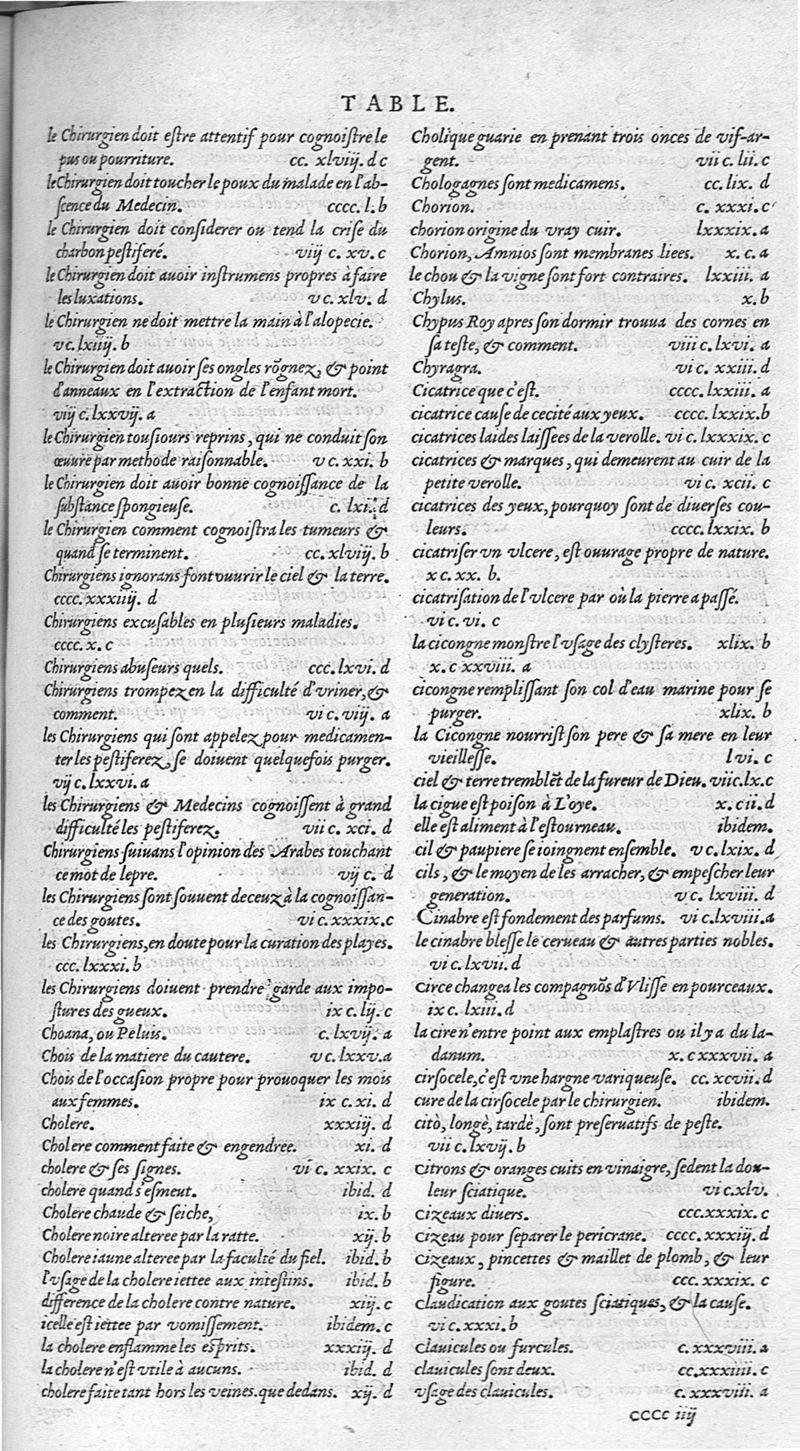 TABLE.
le Chirurgien doit eſtre attentif pour cognoiſtre le
pus ou pourriture. cc. xlviij. d c
le Chirurgien doit toucher le poux du malade en l'ab-
ſcence du Medecin. cccc. l. b
le Chirurgien doit conſiderer ou tend la criſe du
charbon peſtiferé. viij c. xv. c
le Chirurgien doit auoir inſtrumens propres à faire
les luxations. v c. xlv. d
le Chirurgien ne doit mettre la main à l'alopecie.
v c. lxiiij. b
le Chirurgien doit auoir ſes ongles rõgnez, & point
d'anneaux en l'extraction de l'enfant mort.
viij c. lxxvij. a
le Chirurgien touſiours reprins, qui ne conduit ſon
œuure par methode raiſonnable. v c. xxi. b
le Chirurgien doit auoir bonne cognoiſſance de la
ſubſtance ſpongieuſe. c. lxi. d
le Chirurgien comment cognoiſtra les tumeurs &
quand ſe terminent. cc. xlviij. b
Chirurgiens ignorans font ouurir le ciel & la terre.
cccc. xxxiiij. d
Chirurgiens excuſables en pluſieurs maladies.
cccc. x. c
Chirurgiens abuſeurs quels. ccc. lxvi. d
Chirurgiens trompez en la difficulté d'vriner, &
comment. vi c. viij. a
les Chirurgiens qui ſont appelez pour medicamen-
ter les peſtiferez, ſe doiuent quelquefois purger.
vij c. lxxvi. a
les Chirurgiens & Medecins cognoiſſent à grand
difficulté les peſtiferez. vii c. xci. d
Chirurgiens ſuiuans l'opinion des Arabes touchant
ce mot de lepre. vij c. d
les Chirurgiens ſont ſouuent deceuz à la cognoiſſan-
ce des goutes. vi c. xxxix. c
les Chirurgiens, en doute pour la curation des playes.
ccc. lxxxi. b
les Chirurgiens doiuent prendre garde aux impo-
ſtures des gueux. ix c. lij. c
Choana, ou Peluis. c. lxvij. a
Chois de la matiere du cautere. v c. lxxv. a
Chois de l'occaſion propre pour prouoquer les mois
aux femmes. ix c. xi. d
Cholere. xxxiij. d
Cholere comment faite & engendree. xi. d
cholere & ſes ſignes. vi c. xxix. c
cholere quand s'eſmeut. ibid. d
Cholere chaude & ſeiche, ix. b
Cholere noire alteree par la ratte. xij. b
Cholere iaune alteree par la faculté du fiel. ibid. b
l'vſage de la cholere iettee aux inteſtins. ibid. b
difference de la cholere contre nature. xiij. c
icelle eſt iettee par vomiſſement. ibidem. c
la cholere enflamme les eſprits. xxxiij. d
la cholere n'eſt vtile à aucuns. ibid. d
cholere faite tant hors les veines que dedans. xij. d
Cholique guarie en prenant trois onces de vif-ar-
gent. vii c. lii. c
Chologagnes ſont medicamens. cc. lix. d
Chorion. c. xxxi. c
chorion origine du vray cuir. lxxxix. a
Chorion, Amnios ſont membranes liees. x. c. a
le chou & la vigne ſont fort contraires. lxxiii. a
Chylus. x. b
Chypus Roy apres ſon dormir trouua des cornes en
ſa teſte, & comment. viii c. lxvi. a
Chyragra. vi c. xxiii. d
Cicatrice que c'eſt. cccc. lxxiii. a
cicatrice cauſe de cecité aux yeux. cccc. lxxix. b
cicatrices laides laiſſees de la verolle. vi c. lxxxix. c
cicatrices & marques, qui demeurent au cuir de la
petite verolle. vi c. xcii. c
cicatrices des yeux, pourquoy ſont de diuerſes cou-
leurs. cccc. lxxix. b
cicatriſer vn vlcere, eſt ouurage propre de nature.
x c. xx. b.
cicatriſation de l'vlcere par où la pierre a paſſé.
vi c. vi. c
la cicongne monſtre l'vſage des clyſteres. xlix. b
x. c xxviii. a
cicongne rempliſſant ſon col d'eau marine pour ſe
purger. xlix. b
la Cicongne nourriſt ſon pere & ſa mere en leur
vieilleſſe. lvi. c
ciel & terre tremblẽt de la fureur de Dieu. vii c. lx. c
la cigue eſt poiſon à L'oye. x. cii. d
elle eſt aliment à l'eſtourneau. ibidem.
cil & paupiere ſe ioingnent enſemble. v c. lxix. d
cils, & le moyen de les arracher, & empeſcher leur
generation. v c. lxviii. d
Cinabre eſt fondement des parfums. vi c. lxviii. a
le cinabre bleſſe le cerueau & autres parties nobles.
vi c. lxvii. d
Circe changea les compagnõs d'Vliſſe en pourceaux.
ix c. lxiii. d
la cire n'entre point aux emplaſtres ou il y a du la-
danum. x. c xxxvii. a
cirſocele, c'eſt vne hargne variqueuſe. cc. xcvii. d
cure de la cirſocele par le chirurgien. ibidem.
citò, longè, tardè, ſont preſeruatifs de peſte.
vii c. lxvij. b
Citrons & oranges cuits en vinaigre, ſedent la dou-
leur ſciatique. vi c. xlv.
Cizeaux diuers. ccc. xxxix. c
Cizeau pour ſeparer le pericrane. cccc. xxxiij. d
Cizeaux, pincettes & maillet de plomb, & leur
figure. ccc. xxxix. c
Claudication aux goutes ſciatiques, & la cauſe.
vi c. xxxi. b
clauicules ou furcules. c. xxxviii. a
clauicules ſont deux. cc. xxxiiii. c
vſage des clauicules. c. xxxviii. a
CCCC iiij